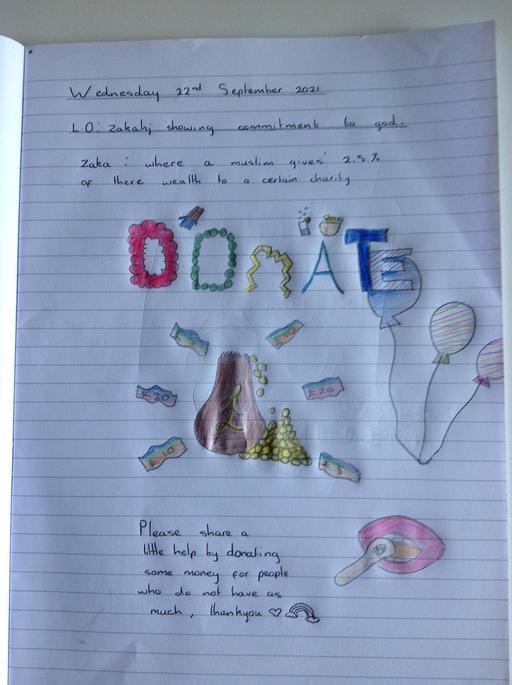 Wednesday 22nd September 2021
L.O: Zakahj showing commitment to god.
Zaka : where a muslim gives 2.5%
of there wealth to a certain charity
DOnATE
£20
£20
£10
£5
£
Please share a
little help by donating
some money for people
who do not have as
much, thankyou